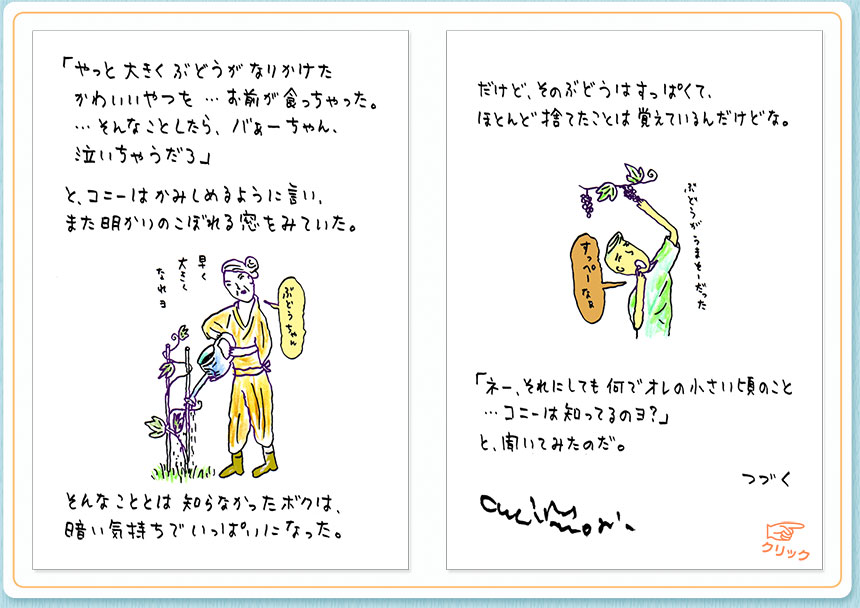 「やっと大きくぶどうがなりかけた
かわいいやつを…お前が食っちゃった。
…そんなことしたら、バぁーちゃん、
泣いちゃうだろ」
と、コニーはかみしめるように言い、
また明かりのこぼれる窓をみていた。
早く
大きく
なれヨ
ぶどうちゃん
そんなこととは知らなかったボクは、
暗い気持ちでいっぱいになった。
だけど、そのぶどうはすっぱくて、
ほとんど捨てたことは覚えているんだけどな。
ぶどうがうまそーだった
すっぺーなぁ
「ネー、それにしても何でオレの小さい頃のこと
…コニーは知ってるのヨ?」
と、聞いてみたのだ。
つづく
クリック